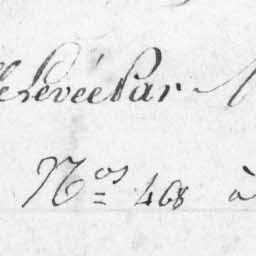 Levée Par
Nos 468 à